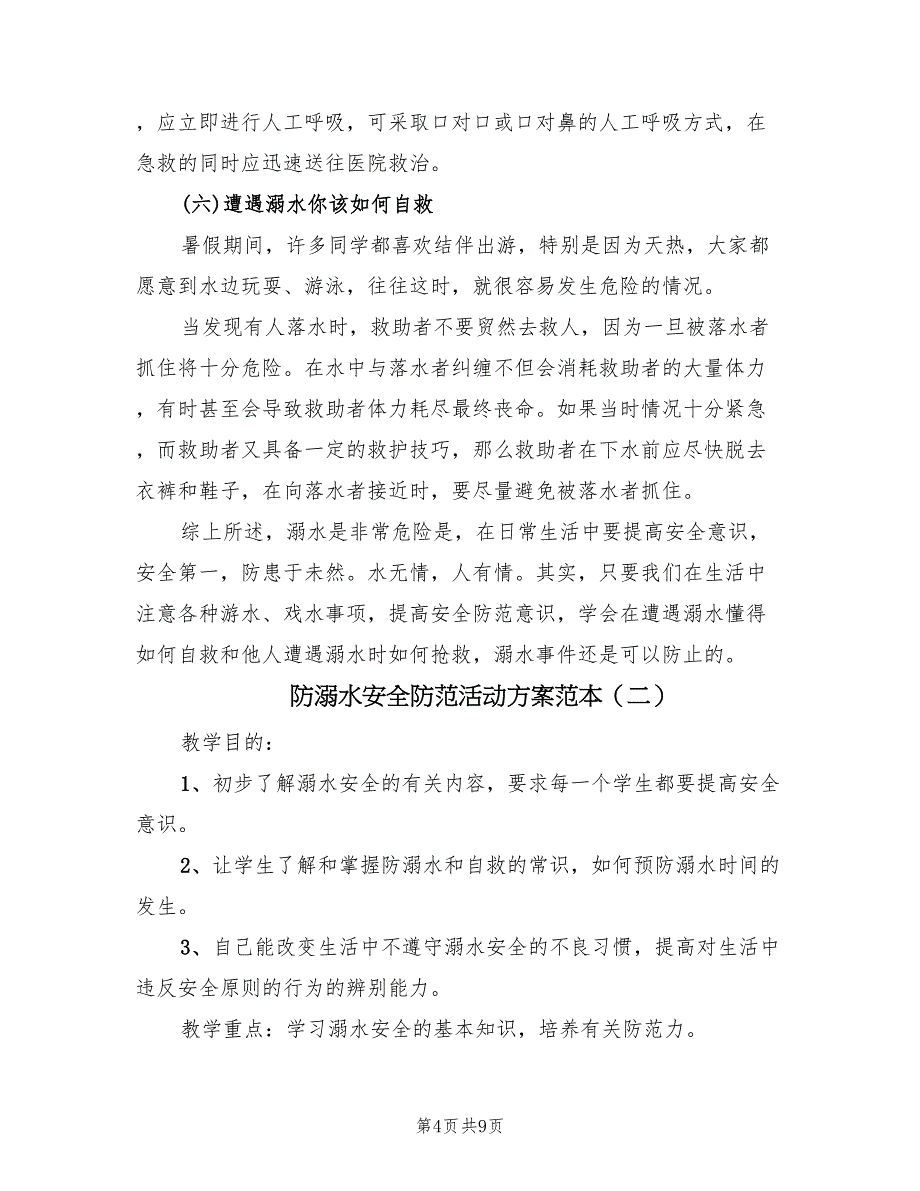 ，应立即进行人工呼吸，可采取口对口或口对鼻的人工呼吸方式，在
急救的同时应迅速送往医院救治。
(六)遭遇溺水你该如何自救
暑假期间，许多同学都喜欢结伴出游，特别是因为天热，大家都
愿意到水边玩耍、游泳，往往这时，就很容易发生危险的情况。
当发现有人落水时，救助者不要贸然去救人，因为一旦被落水者
抓住将十分危险。在水中与落水者纠缠不但会消耗救助者的大量体力
，有时甚至会导致救助者体力耗尽最终丧命。如果当时情况十分紧急
，而救助者又具备一定的救护技巧，那么救助者在下水前应尽快脱去
衣裤和鞋子，在向落水者接近时，要尽量避免被落水者抓住。
综上所述，溺水是非常危险是，在日常生活中要提高安全意识，
安全第一，防患于未然。水无情，人有情。其实，只要我们在生活中
注意各种游水、戏水事项，提高安全防范意识，学会在遭遇溺水懂得
如何自救和他人遭遇溺水时如何抢救，溺水事件还是可以防止的。
防溺水安全防范活动方案范本（二）
教学目的：
1、初步了解溺水安全的有关内容，要求每一个学生都要提高安全
意识。
2、让学生了解和掌握防溺水和自救的常识，如何预防溺水时间的
发生。
3、自己能改变生活中不遵守溺水安全的不良习惯，提高对生活中
违反安全原则的行为的辨别能力。
教学重点：学习溺水安全的基本知识，培养有关防范力。
第4页 共9页